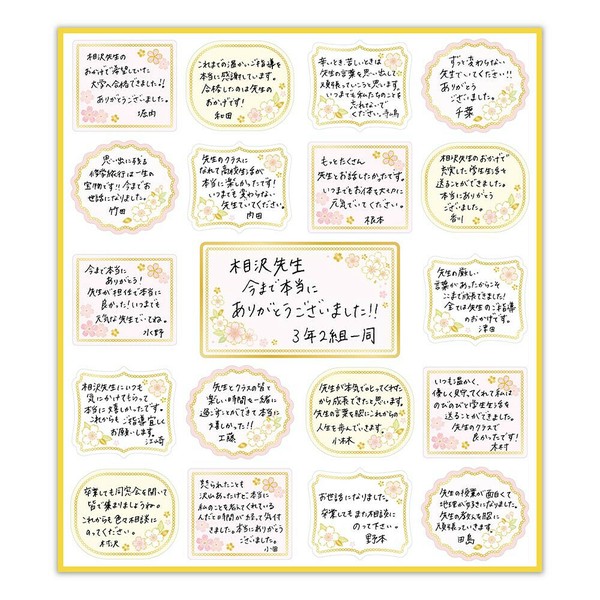 相沢先生の
おかげで希望していた
大学へ合格できました!!
ありがとうございました。
堀内
これまでの温かいご指導を
本当に感謝しています。
合格したのは先生の
おかげです!
和田
辛い時、苦しいときは
先生の言葉を思い出して
頑張っていこうと思います。
いつまでも私たちのことを
忘れないで
ください。寺島
ずっと変わらない
先生でいてください!!
ありがとう
ございました。
千葉
思い出に残る
修学旅行は一生の
宝物です!!今まで
お世話になりました。
竹田
先生のクラスに
なれて高校生活が
本当に楽しかったです!
いつまでも変わらない
先生でいてください。
内田
もっとたくさん
先生とお話したかったです。
いつまでもお体を大切に
元気でいてください。
根本
相沢先生のおかげで
充実した学生生活を
送ることができました。
本当にありがとう
ございました。
香川
相沢先生
今まで本当に
ありがとうございました!!
3年2組一同
今まで本当に
ありがとう!
先生が担任で本当に
良かった!いつまでも
元気な先生でいてね。
水野
先生の厳しい
言葉があったからこそ
ここまで成長できました!
全ては先生のご指導
のおかげです。
津田
相沢先生にいつも
気にかけてもらって
本当に嬉しかったです。
これからもご指導宜しく
お願いします。
江崎
先生とクラスの皆で
楽しい時間を一緒に
過ごすことができて本当に
嬉しかった!!
工藤
先生が本気で叱ってくれた
から成長できたと思います。
先生の言葉を胸にこれからの
人生を歩んでいきます。
小林
いつも温かく、
優しく見守ってくれて私は
のびのびと学生生活を
送ることができました。
先生のクラスで
良かったです!
木村
卒業しても同窓会を開いて
皆で集まりましょうね。
これからも色々相談に
のってください。
村沢
怒られたことも
沢山あったけど、本当に
私のことを考えてくれている
んだと時間が経って気付
きました。本当にありがとう
ございます。
小田
お世話になりました。
卒業してもまた相談に
のって下さい。
野本
先生の授業が面白くて
地理が好きになりました。
先生の教えを胸に
頑張っていきます。
田島